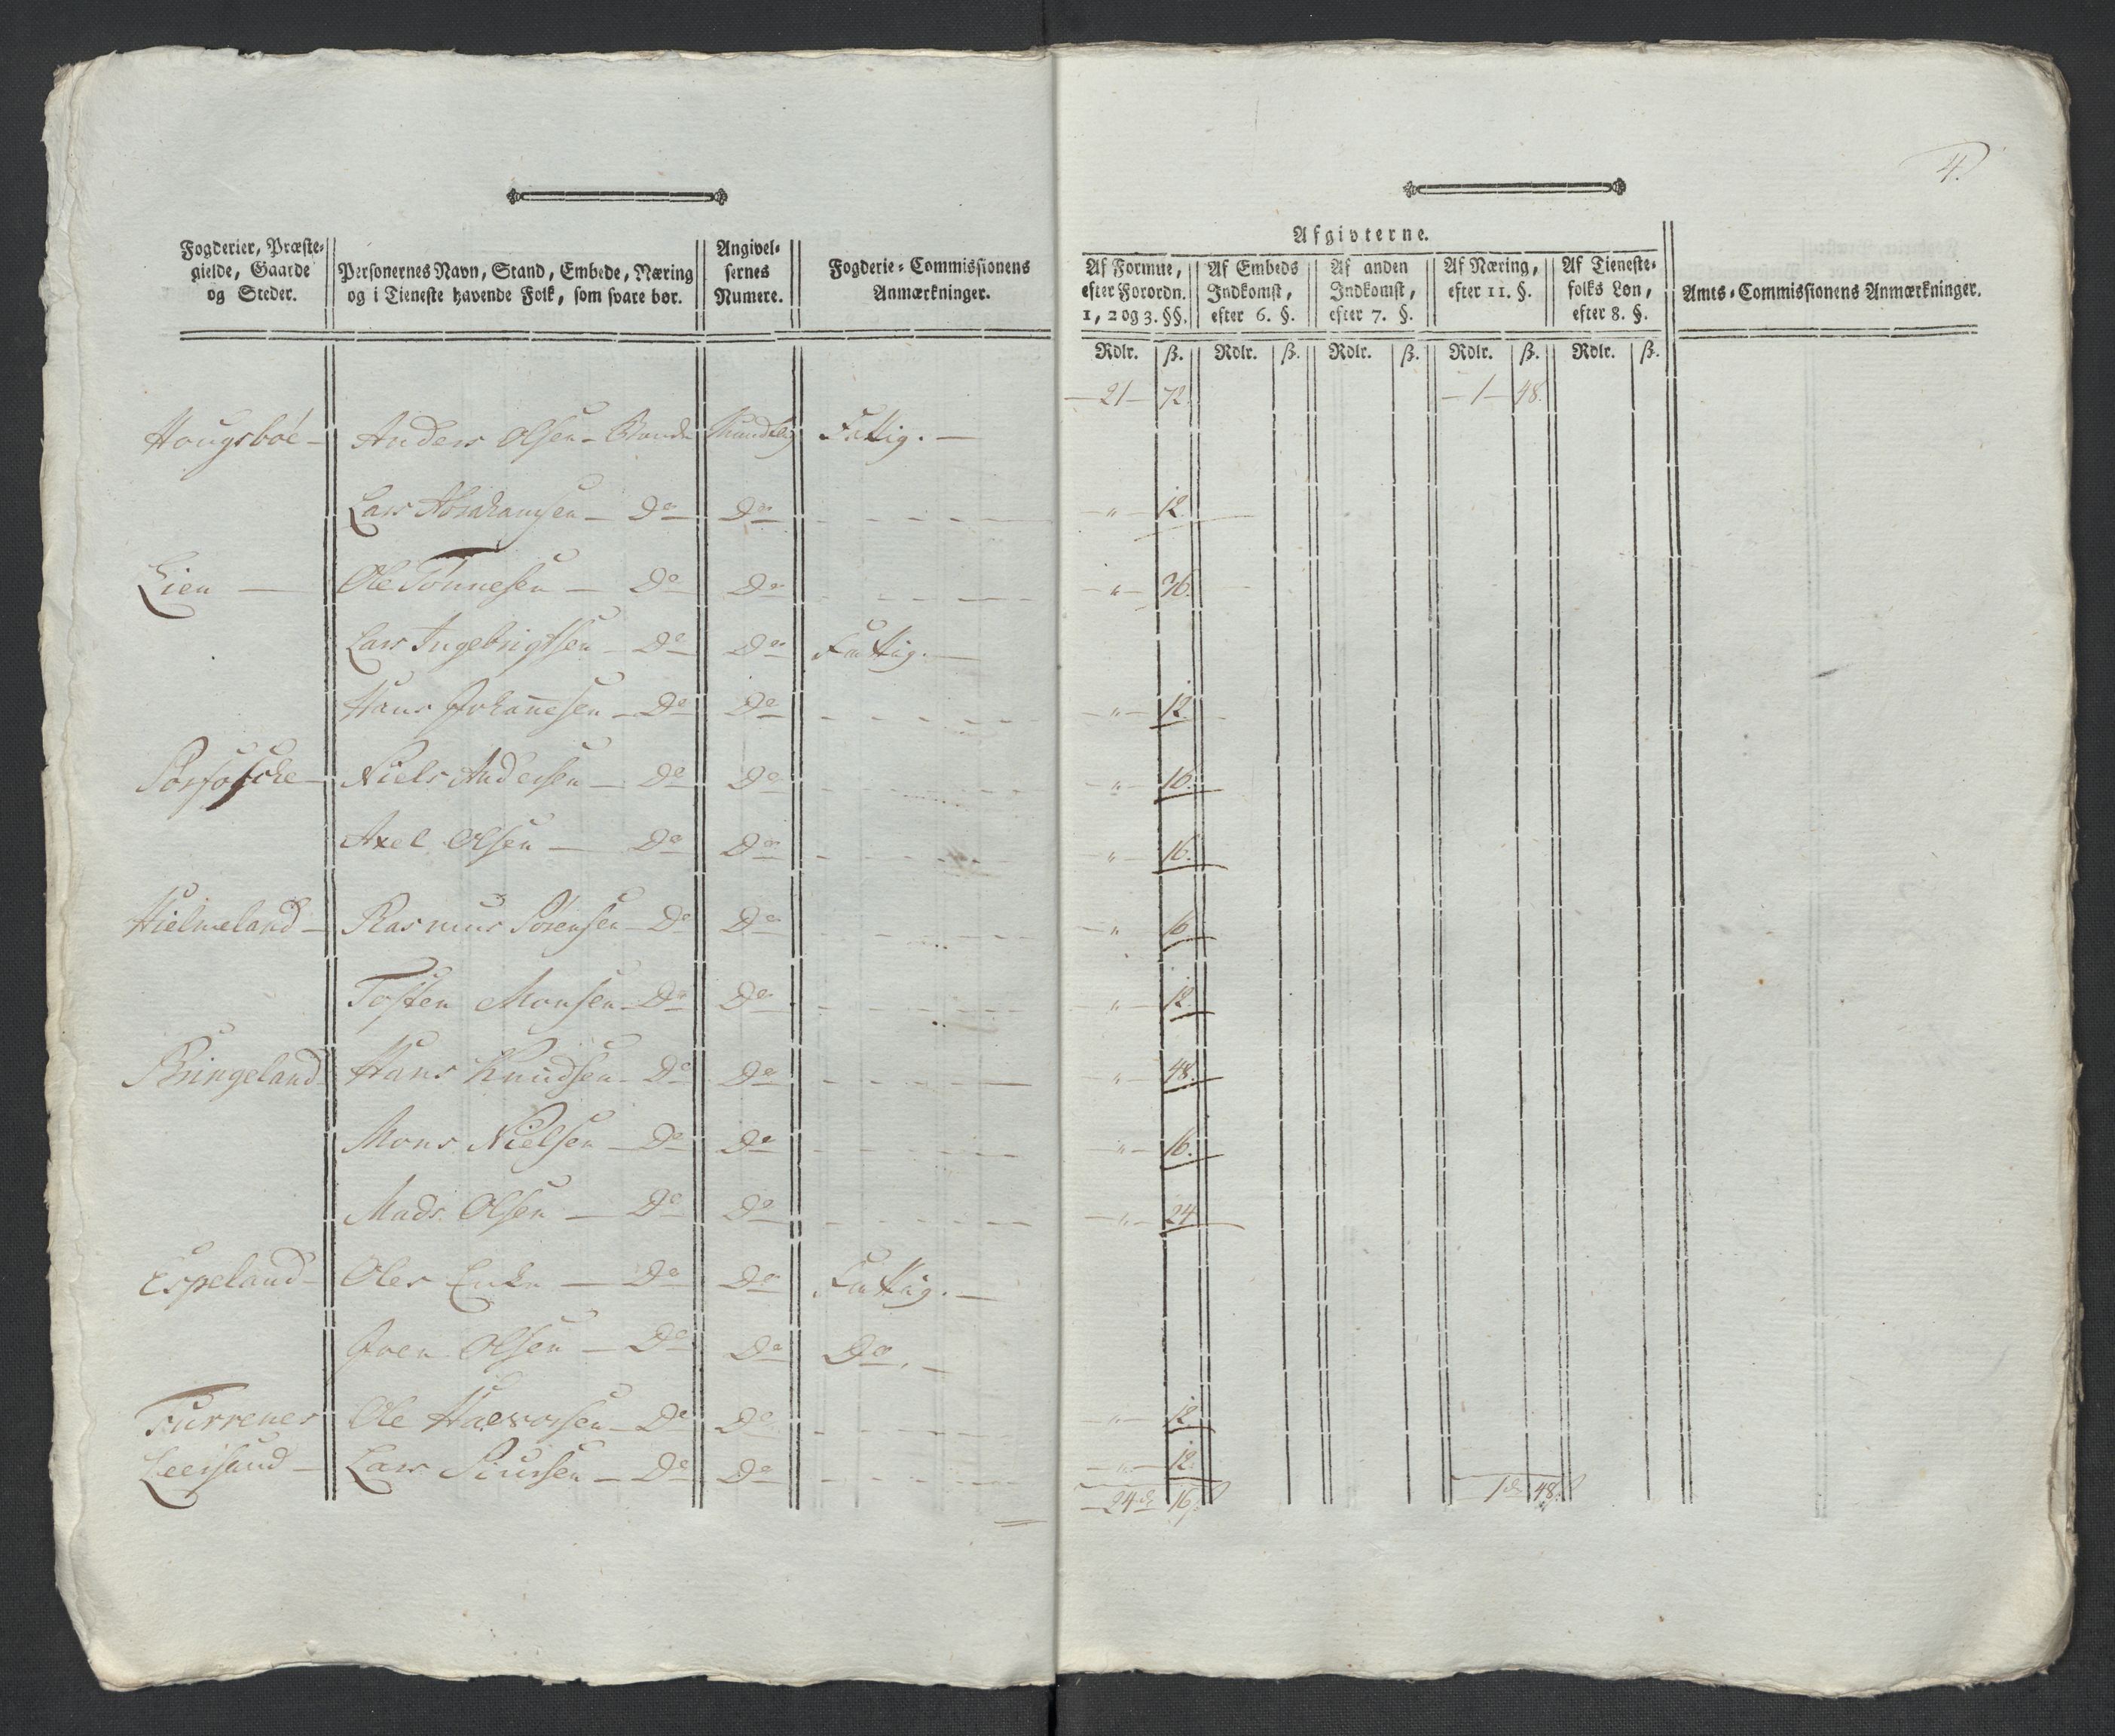 4.
Afgivterne.
Fogderier, Præste-gielde, Gaarde og Steder. Personernes Navn, Stand, Embede, Næring og i Tieneste havende Folk, som svare bør. Angivel-sernes Numere. Fogderie-Commissionens Anmærkninger. Af Formue, efter Forordn. 1, 2 og 3. §§. Af Embeds Indkomst, efter 6. §. Af anden Indkomst, efter 7. §. Af Næring, efter 11. §. Af Tieneste-folks Løn, efter 8. §. Amts-Commissionens Anmærkninger.
Rdlr. ß. Rdlr. ß. Rdlr. ß. Rdlr. ß. Rdlr. ß.
— 21 — 72. — 1 — 48.
Hougsboe — Anders Olsen — Bonde Mundtlig Fattig. —
Lars Abrahamsen — Do Do — „ — 12.
Lien — Ole Tønnesen — Do Do — „ — 36.
Lars Ingebrigtsen — Do Do Fattig. —
Hans Johannesen — Do Do — „ — 12.
Niels Andersen — Do Do — „ — 16.
Axel Olsen — Do Do „ — 16.
Hielmeland — Rasmus Sørensen — Do Do — „ 16.
Tosten Monsen — Do Do — „ — 12.
Bringeland Hans Knudsen — Do Do — „ — 48.
Mons Nielsen — Do Do — „ — 16.
Mads Olsen — Do Do — „ — 24
Espeland — Oles Enke — Do Do Fattig. —
Iver Olsen — Do Do Do. —
Furrenes Ole Halvorsen — Do Do „ — 12.
Leersund — Lars Siursen — Do Do — „ — 12.
— 24 16. — 1 48.